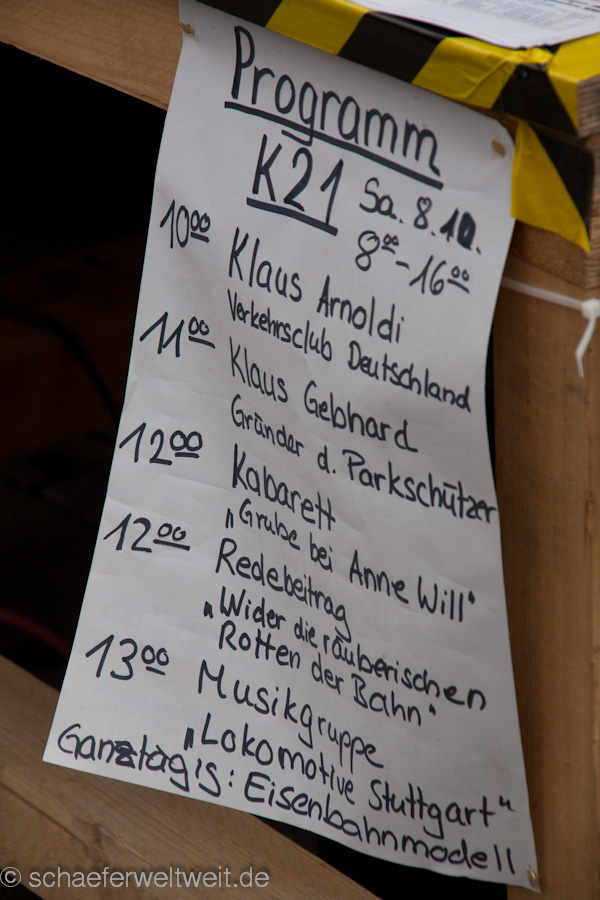 Programm
K21 Sa. 8.10.
8⁰⁰-16⁰⁰
10⁰⁰ Klaus Arnoldi
Verkehrsclub Deutschland
11⁰⁰ Klaus Gebhard
Gründer d. Parkschützer
12⁰⁰ Kabarett
„Grube bei Anne Will"
12⁰⁰ Redebeitrag
„Wider die räuberischen
Rotten der Bahn"
13⁰⁰ Musikgruppe
„Lokomotive Stuttgart"
Ganztägis: Eisenbahnmodell
© schaeferweltweit.de